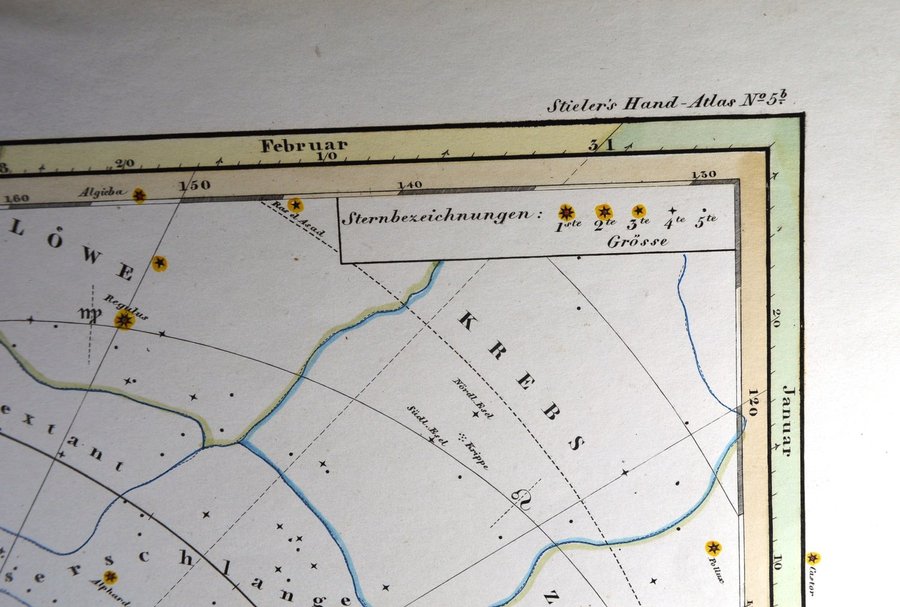 Stieler's Hand-Atlas No 5b
Februar
20
10
31
Algieba
150
140
130
160
Ras el Asad
Sternbezeichnungen:
1ste 2te 3te 4te 5te
Grösse
LÖWE
Regulus
KREBS
20
Januar
120
Nördl. Esel
Südl. Esel
Krippe
♌
extant
serschlange
Alphard
Pollux
Castor
10
Z